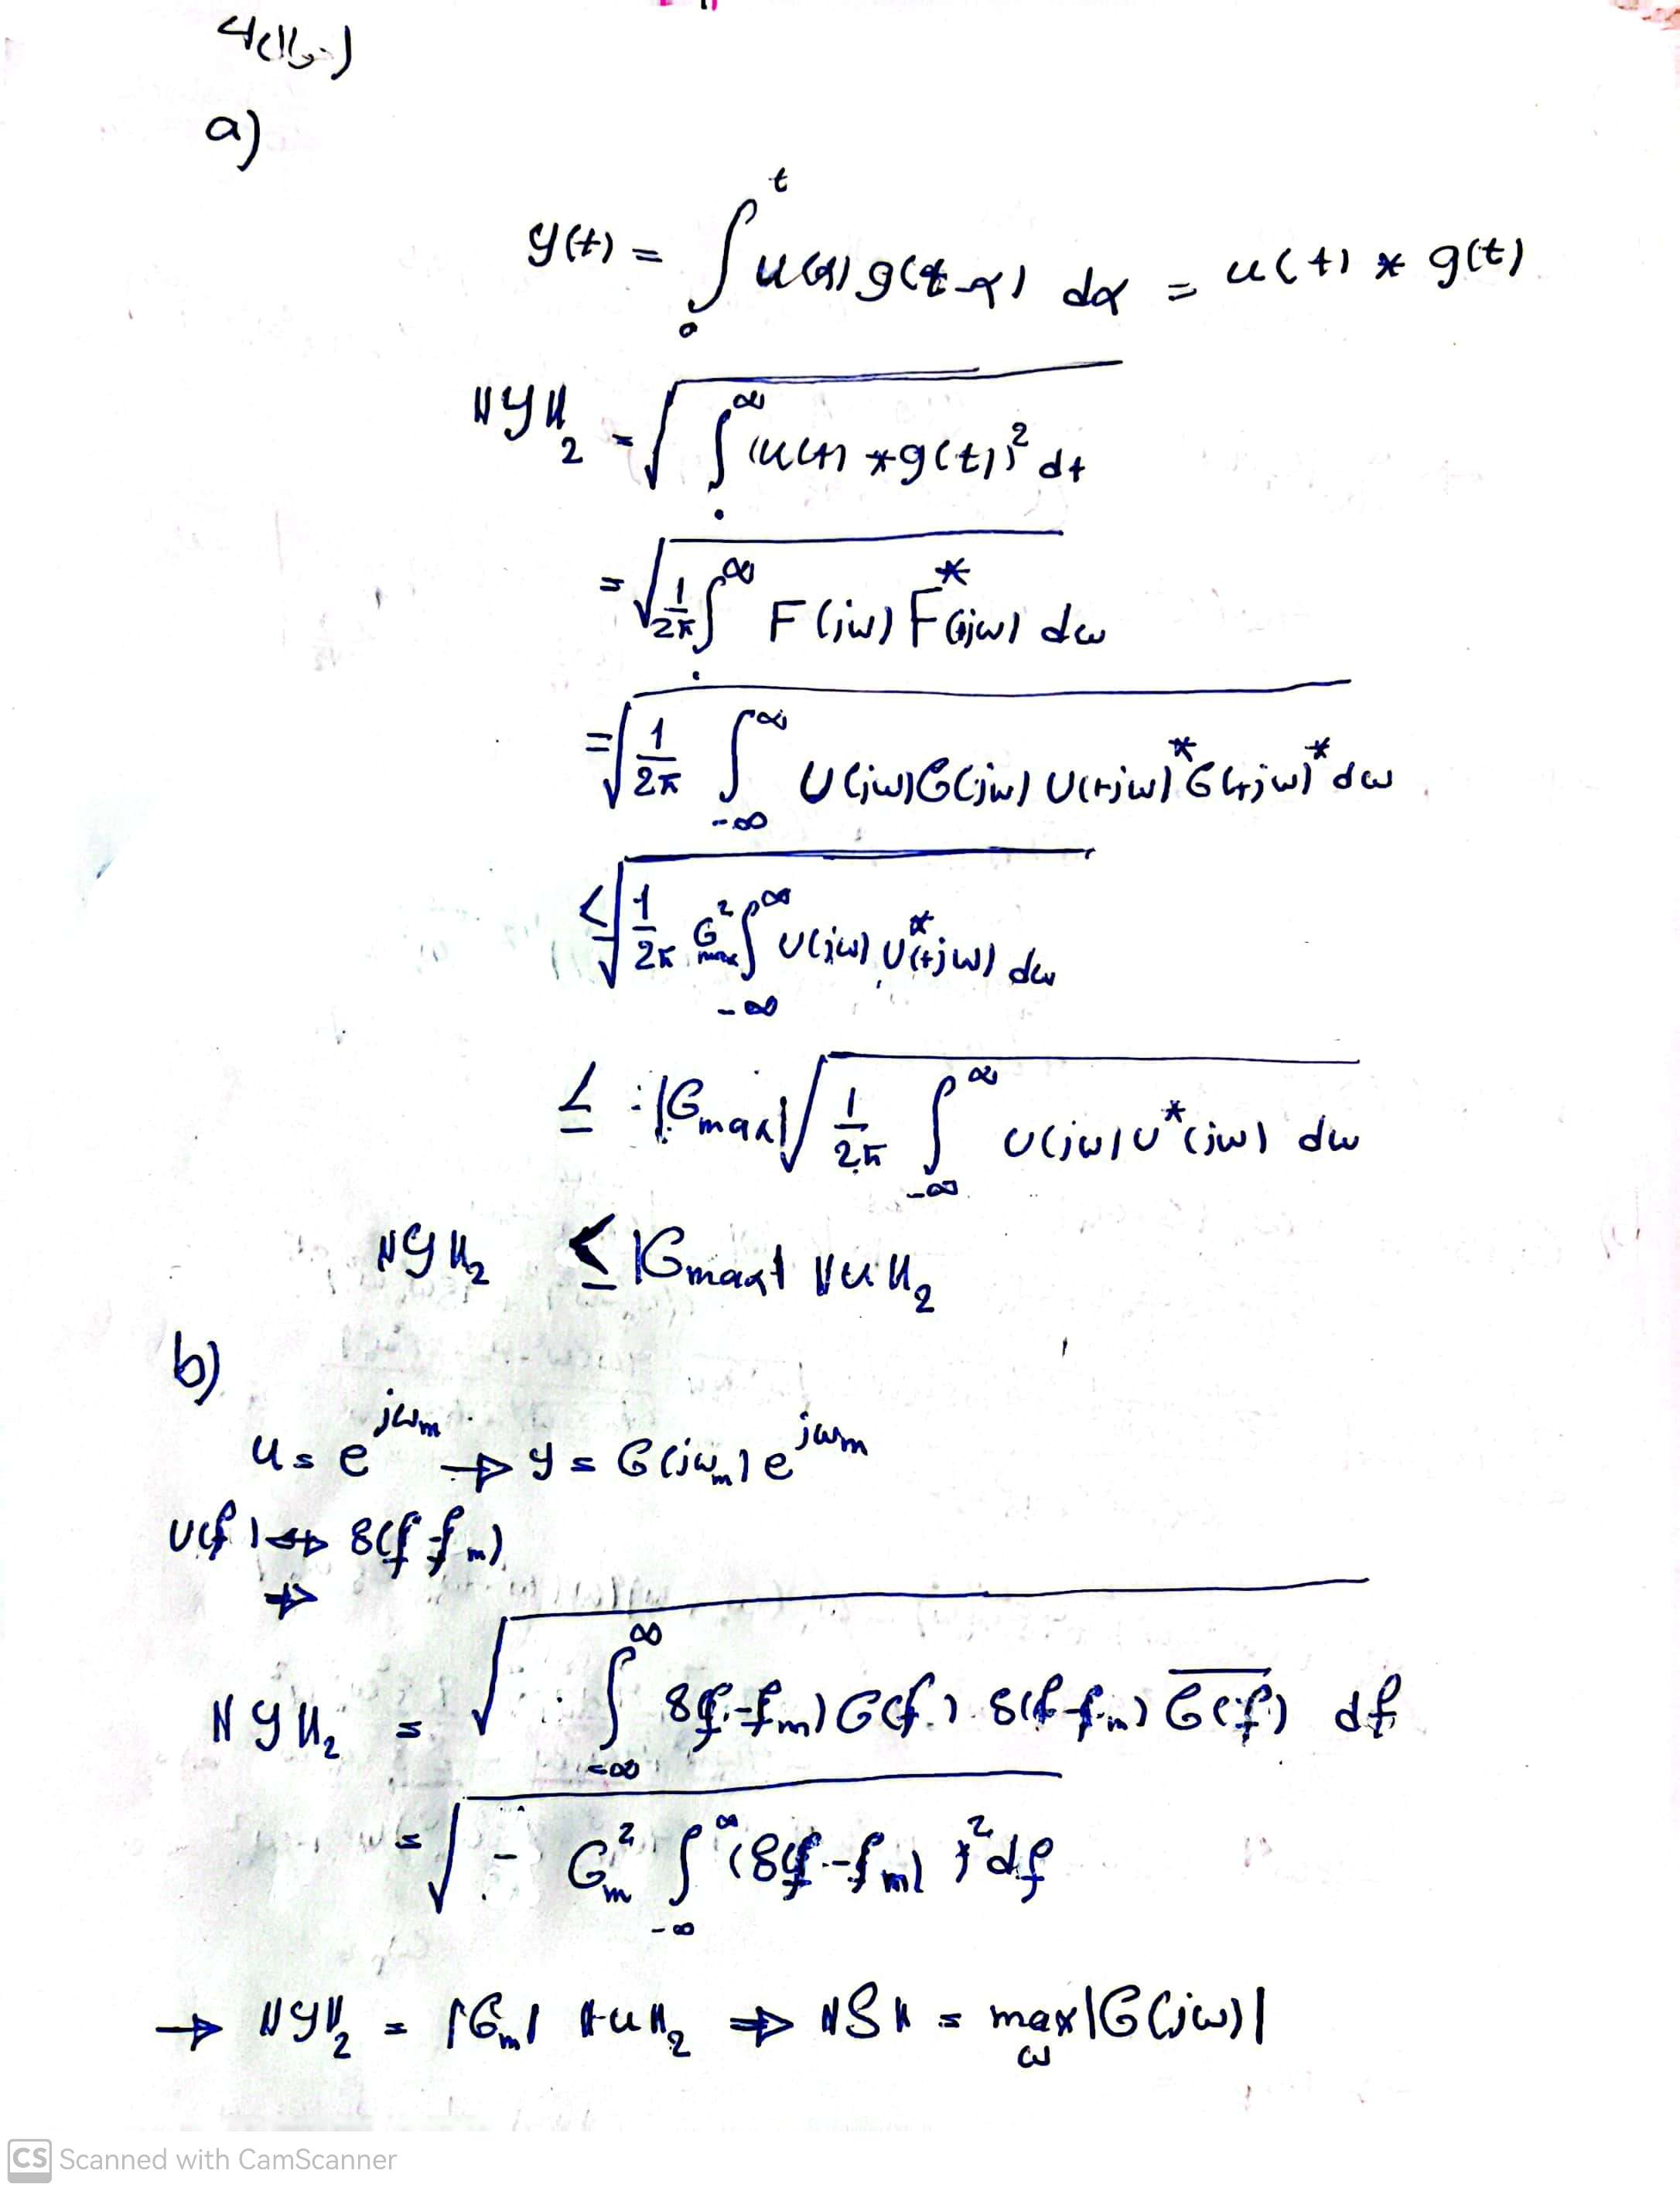 a)
y(t) = ∫₀ᵗ u(α) g(t-α) dα = u(t) * g(t)
‖y‖₂ = √(∫₀^∞ (u(t) * g(t))² dt)
= √(1/2π ∫^∞ F(jω) F*(jω) dω)
= √(1/2π ∫_{-∞}^∞ U(jω) G(jω) U(+jω)* G(+jω)* dω)
≤ √(1/2π G²max ∫_{-∞}^∞ U(jω) U*(+jω) dω)
≤ |Gmax| √(1/2π ∫_{-∞}^∞ U(jω) U*(jω) dω)
‖y‖₂ ≤ |Gmax| ‖u‖₂
b)
u = e^{jωm} → y = G(jωm) e^{jωm}
U(f) ↔ δ(f-fm)
⇒
‖y‖₂ = √(∫_{-∞}^∞ δ(f-fm) G(f) δ(f-fm) \overline{G(f)} df)
= √(G²m ∫_{-∞}^∞ (δ(f-fm))² df)
→ ‖y‖₂ = |Gm| ‖u‖₂ ⇒ ‖S‖ = max_ω |G(jω)|
CS Scanned with CamScanner